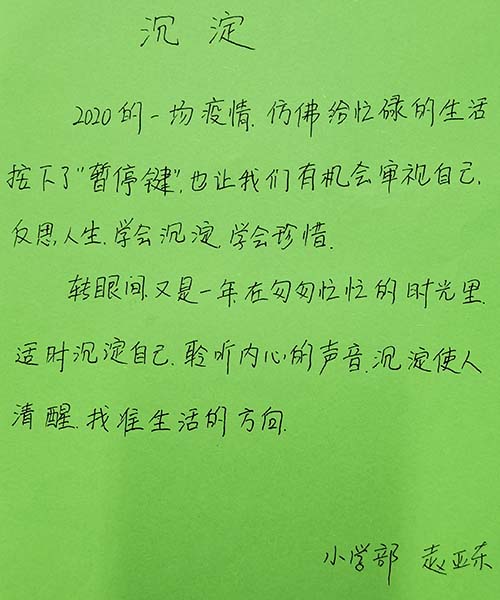 沉淀
2020的一场疫情.仿佛给忙碌的生活
按下了"暂停键",也让我们有机会审视自己.
反思人生.学会沉淀.学会珍惜.
转眼间.又是一年在匆匆忙忙的时光里.
适时沉淀自己.聆听内心的声音.沉淀使人
清醒.找准生活的方向.
小学部 赵亚东